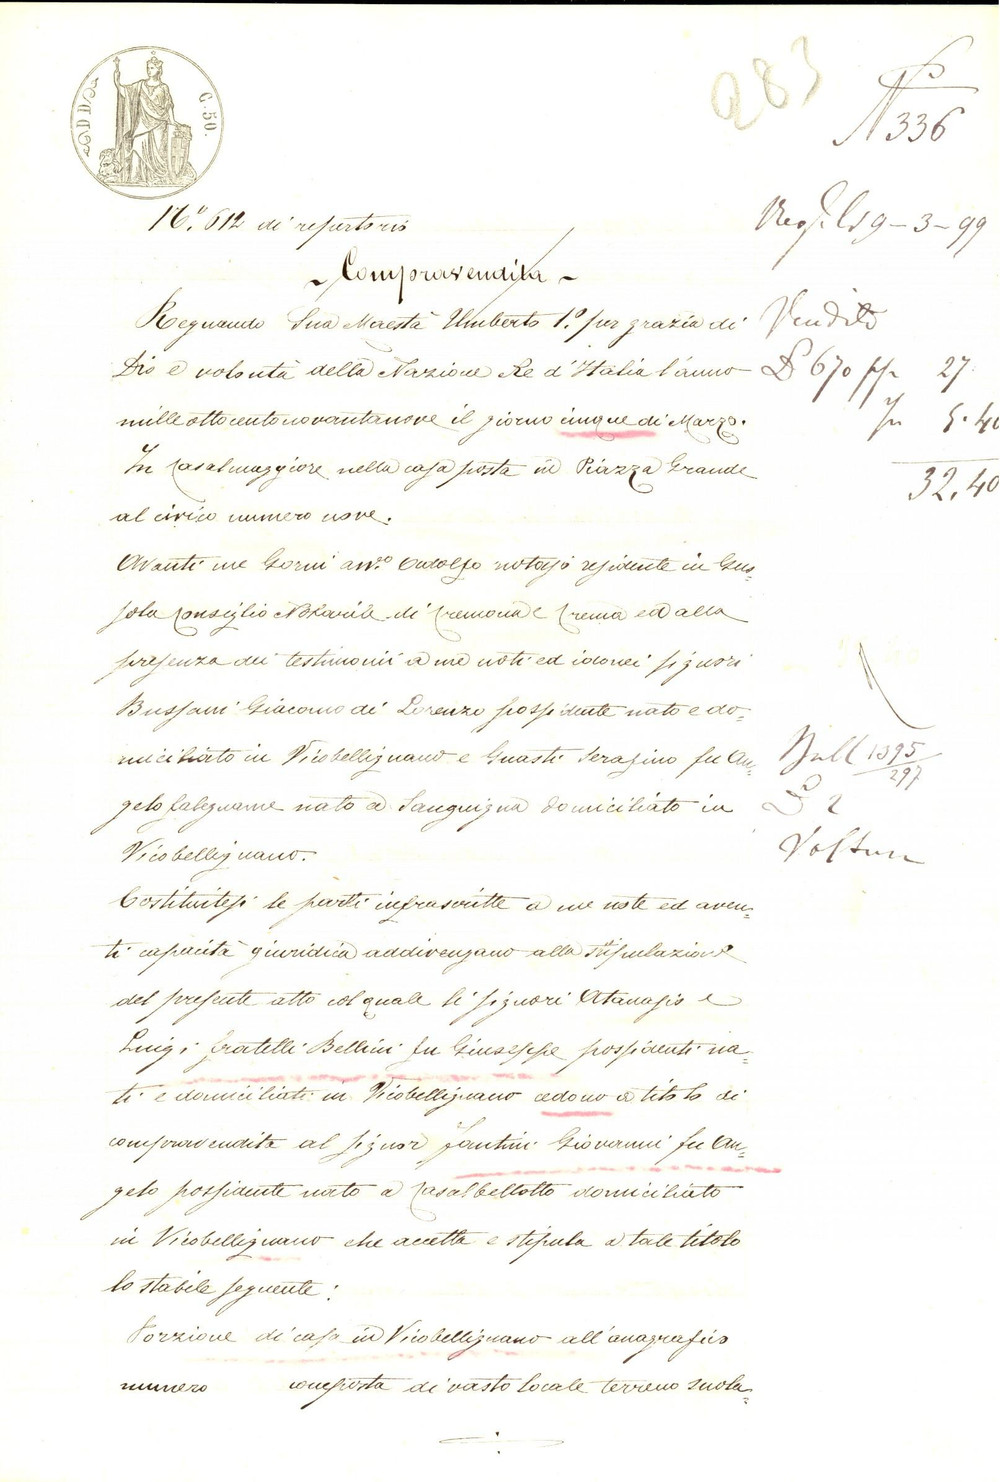 C. 50.
283
N° 336
N.° 612 di repertorio
Reg. li 9-3-99
Compravendita
Regnando Sua Maestà Umberto 1.° per grazia di
Dio e volontà della Nazione Re d'Italia l'anno
mille ottocentonovantanove il giorno cinque di Marzo.
In Casalmaggiore nella casa posta in Piazza Grande
al civico numero nove.
Vendita
L 670 27
5.40
32.40
Avanti me Gorni Rodolfo notajo residente in Gus-
sola Consiglio Notarile di Cremona e Crema ed alla
presenza dei testimonii a me noti ed idonei signori
Bussani Giacomo di Lorenzo possidente nato e do-
miciliato in Vicobellignano e Guasti Serafino fu An-
gelo falegname nato a Sanguigna domiciliato in
Vicobellignano.
1395
297
L 2
Voltura
Costituitesi le parti infrascritte a me note ed aven-
ti capacità giuridica addivengano alla stipulazione
del presente atto col quale li signori Atanasio e
Luigi fratelli Bellini fu Giuseppe possidenti na-
ti e domiciliati in Vicobellignano cedono a titolo di
compravendita al signor Fantini Giovanni fu An-
gelo possidente nato a Casalbellotto domiciliato
in Vicobellignano che accetta e stipula a tale titolo
lo stabile seguente:
Porzione di casa in Vicobellignano all'anagrafico
numero composta di vasto locale terreno suola-